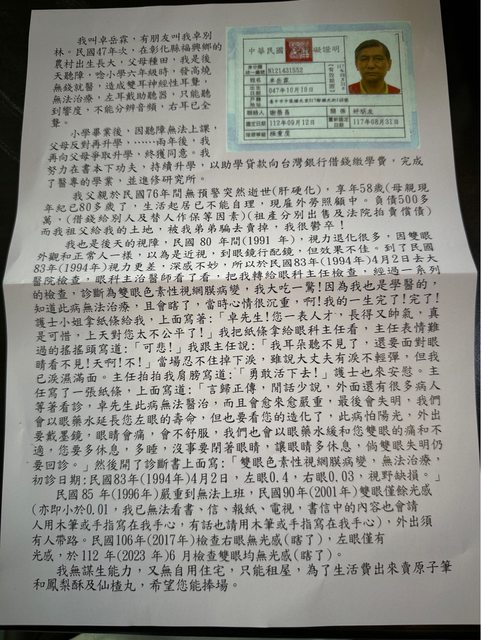 我叫卓岳霖,有朋友叫我卓別
林。民國47年次,在彰化縣福興鄉的
農村出生長大,父母種田,我是後
天聽障,唸小學六年級時,發高燒
無錢就醫,造成雙耳神經性耳聾,
無法治療,左耳戴助聽器,只能聽
到響度,不能分辨音頻,右耳已全
聾。
小學畢業後,因聽障無法上課,
父母反對再升學,……兩年後,我
再向父母爭取升學,終獲同意。我
努力在書本下功夫,持續升學,以助學貸款向台灣銀行借錢繳學費,完成
了醫專的學業,並進修研究所。
我父親於民國76年間無預警突然逝世(肝硬化),享年58歲(母親現
年紀已80多歲了,生活起居已不能自理,現雇外勞照顧中。負債500多
萬,(借錢給別人及替人作保等因素)(祖產分別出售及法院拍賣償債)
而我祖父給我的土地,被我弟弟騙去賣掉,我很鬱卒!
我也是後天的視障,民國 80 年間(1991 年),視力退化很多,因雙眼
外觀和正常人一樣,以為是近視,到眼鏡行配鏡,但效果不佳。到了民國
83年(1994年)視力更差,深感不妙,所以於民國83年(1994年)4月2日去大
醫院檢查,眼科主治醫師看了看,把我轉給眼科主任檢查,經過一系列
的檢查,診斷為雙眼色素性視網膜病變,我大吃一驚!因為我也是學醫的,
知道此病無法治療,且會瞎了,當時心情很沉重,啊!我的一生完了!完了!
護士小姐拿紙條給我,上面寫著:「卓先生!您一表人才,長得又帥氣,真
是可惜,上天對您太不公平了!」我把紙條拿給眼科主任看,主任表情難
過的搖搖頭寫道:「可悲!」我跟主任說:「我耳朵聽不見了,還要面對眼
睛看不見!天啊!不!」當場忍不住掉下淚,雖說大丈夫有淚不輕彈,但我
已淚濕滿面。主任拍拍我肩膀寫道:「勇敢活下去!」護士也來安慰。主
任寫了一張紙條,上面寫道:「言歸正傳,閒話少說,外面還有很多病人
等著看診,卓先生此病無法醫治,而且會愈來愈嚴重,最後會失明,我們
會以眼藥水延長您左眼的壽命,但也要看您的造化了,此病怕陽光,外出
要戴墨鏡,眼睛會痛,會不舒服,我們也會以眼藥水緩和您雙眼的痛和不
適,您要多休息,多睡,沒事要閉著眼睛,讓眼睛多休息,倘雙眼失明仍
要回診。」然後開了診斷書上面寫:「雙眼色素性視網膜病變,無法治療,
初診日期:民國83年(1994年)4月2日,左眼0.4,右眼0.03,視野缺損。」
民國 85 年(1996年)嚴重到無法上班,民國90年(2001年)雙眼僅餘光感
(亦即小於0.01,我已無法看書、信、報紙、電視,書信中的內容也會請
人用木筆或手指寫在我手心,有話也請用木筆或手指寫在我手心),外出須
有人帶路。民國106年(2017年)檢查右眼無光感(瞎了),左眼僅有
光感,於 112 年(2023 年)6 月檢查雙眼均無光感(瞎了)。
我無謀生能力,又無自用住宅,只能租屋,為了生活費出來賣原子筆
和鳳梨酥及仙楂丸,希望您能捧場。
中華民國
礙證明
N121431552
姓名 卓岳霖
出生日期 047年10月10日
鑑定日期 112年09月12日
117年08月31日
極重度